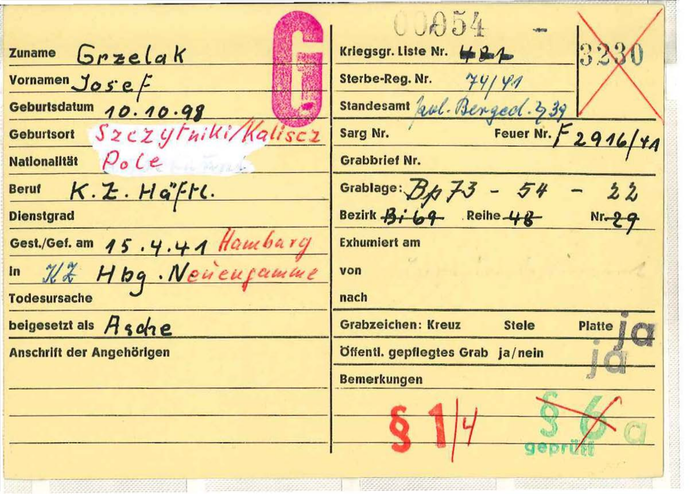 Zuname Grzelak
Vornamen Josef
Geburtsdatum 10.10.98
Geburtsort Szczytniki/Kaliscz
Nationalität Pole
Beruf K.Z. Häftl.
Dienstgrad
Gest./Gef. am 15.4.41 Hamburg
In KZ Hbg. Neuengamme
Todesursache
beigesetzt als Asche
Anschrift der Angehörigen
G
00054 -
Kriegsgr. Liste Nr. 481
3230
Sterbe-Reg. Nr. 74/41
Standesamt Berged. 39
Sarg Nr. Feuer Nr. F 2916/41
Grabbrief Nr.
Grablage: Bp73 - 54 - 22
Bezirk Bi69 Reihe 48 Nr. 29
Exhumiert am
von
nach
Grabzeichen: Kreuz Stele Platte ja
Öffentl. gepflegtes Grab ja/nein ja
Bemerkungen
§ 1/4
§ 6 a
geprüft